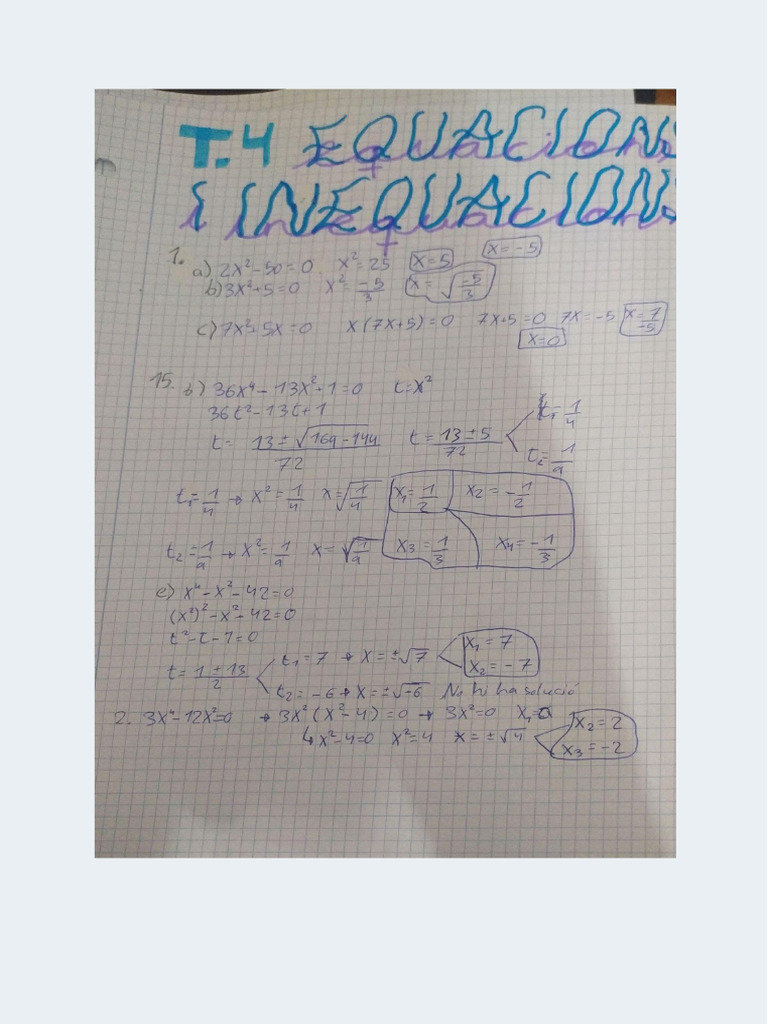 T.4 EQUACIONS
I INEQUACIONS
1. a) 2x²-50=0 x²=25 x=5 x=-5
b) 3x²+5=0 x²=-5/3 x=√-5/3
c) 7x²+5x=0 x(7x+5)=0 7x+5=0 7x=-5 x=7/-5
x=0
15. b) 36x⁴-13x²+1=0 t=x²
36t²-13t+1
t=13±√169-144/72 t=13±5/72 t₁=1/4 t₂=1/9
t₁=1/4 → x²=1/4 x=√1/4 x₁=1/2 x₂=-1/2
t₂=1/9 → x²=1/9 x=√1/9 x₃=1/3 x₄=-1/3
e) x⁴-x²-42=0
(x²)²-x²-42=0
t²-t-1=0
t=1±13/2 t₁=7 → x=±√7 x₁=7 x₂=-7
t₂=-6 → x=±√-6 No hi ha solució
2. 3x⁴-12x²=0 → 3x²(x²-4)=0 → 3x²=0 x₁=0
↳ x²-4=0 x²=4 x=±√4 x₂=2 x₃=-2